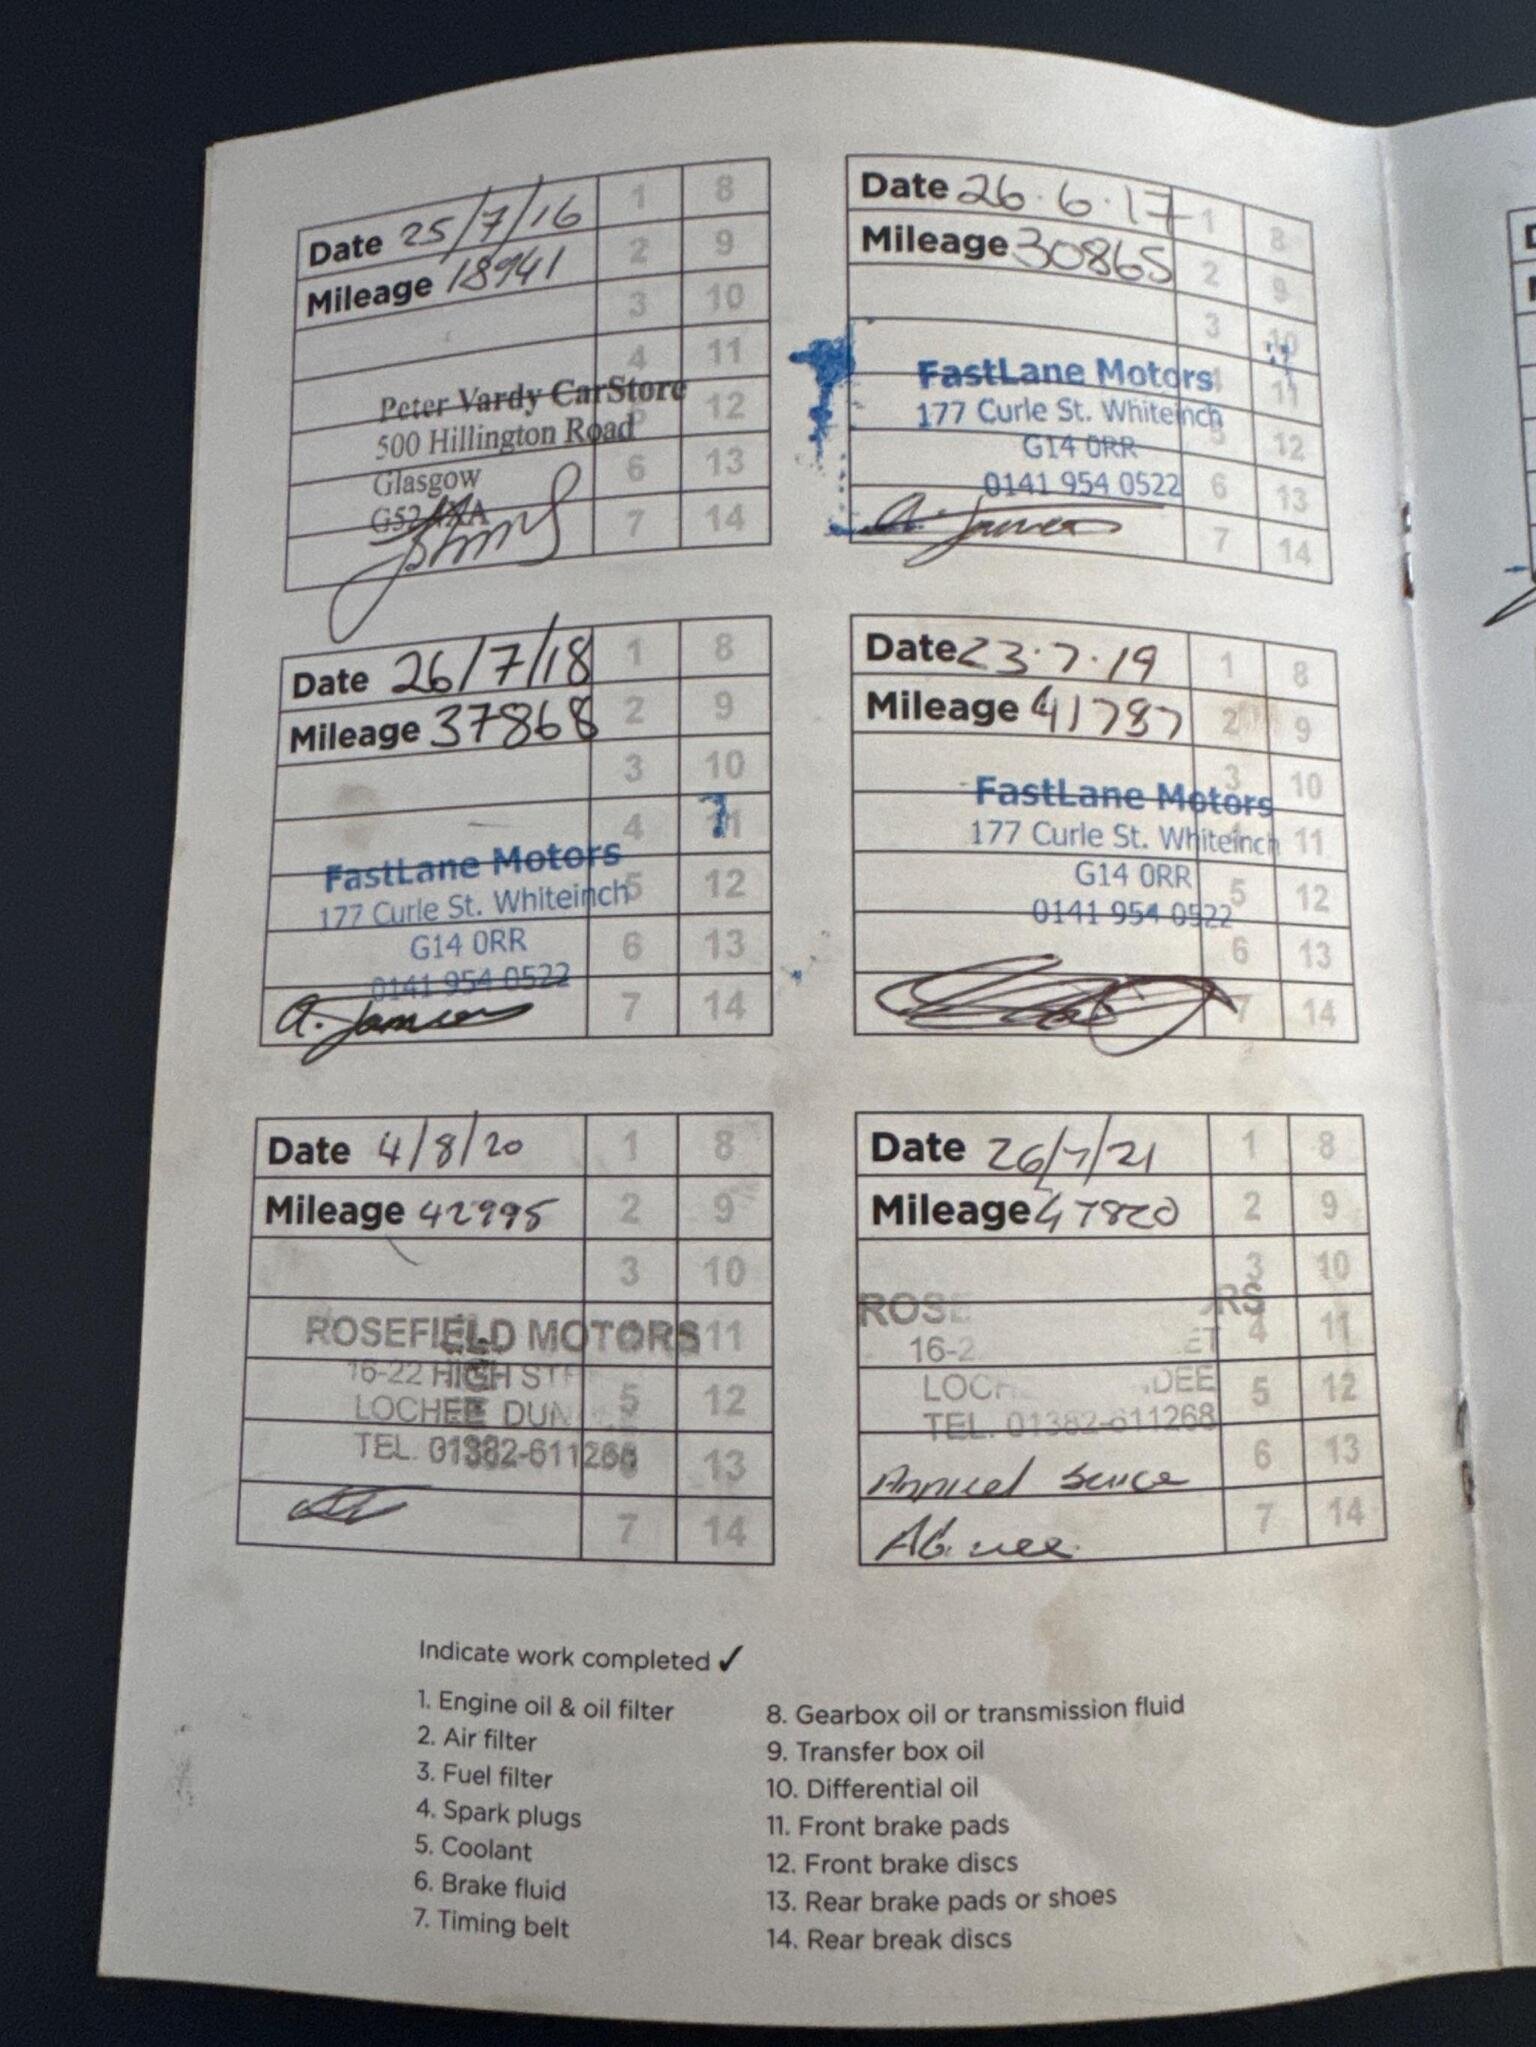 Date 25/7/16
Mileage 18941
1 8
2 9
3 10
4 11
12
6 13
7 14
Peter Vardy CarStore
500 Hillington Road
Glasgow
G52
Date 26.6.17
Mileage 30865
1 8
2 9
3 10
4 11
5 12
6 13
7 14
FastLane Motors
177 Curle St. Whiteinch
G14 0RR
0141 954 0522
A. Jameson
Date 26/7/18
Mileage 37868
1 8
2 9
3 10
4 11
5 12
6 13
7 14
FastLane Motors
177 Curle St. Whiteinch
G14 0RR
0141 954 0522
A. Jameson
Date 23.7.19
Mileage 41787
1 8
2 9
3 10
4 11
5 12
6 13
7 14
FastLane Motors
177 Curle St. Whiteinch
G14 0RR
0141 954 0522
Date 4/8/20
Mileage 42995
1 8
2 9
3 10
11
5 12
6 13
7 14
ROSEFIELD MOTORS
16-22 HIGH
LOCHEE
TEL. 01382-611268
Date 26/7/21
Mileage 47820
1 8
2 9
3 10
4 11
5 12
6 13
7 14
TEL. 01382-611268
Annual
Indicate work completed ✓
1. Engine oil & oil filter
2. Air filter
3. Fuel filter
4. Spark plugs
5. Coolant
6. Brake fluid
7. Timing belt
8. Gearbox oil or transmission fluid
9. Transfer box oil
10. Differential oil
11. Front brake pads
12. Front brake discs
13. Rear brake pads or shoes
14. Rear break discs